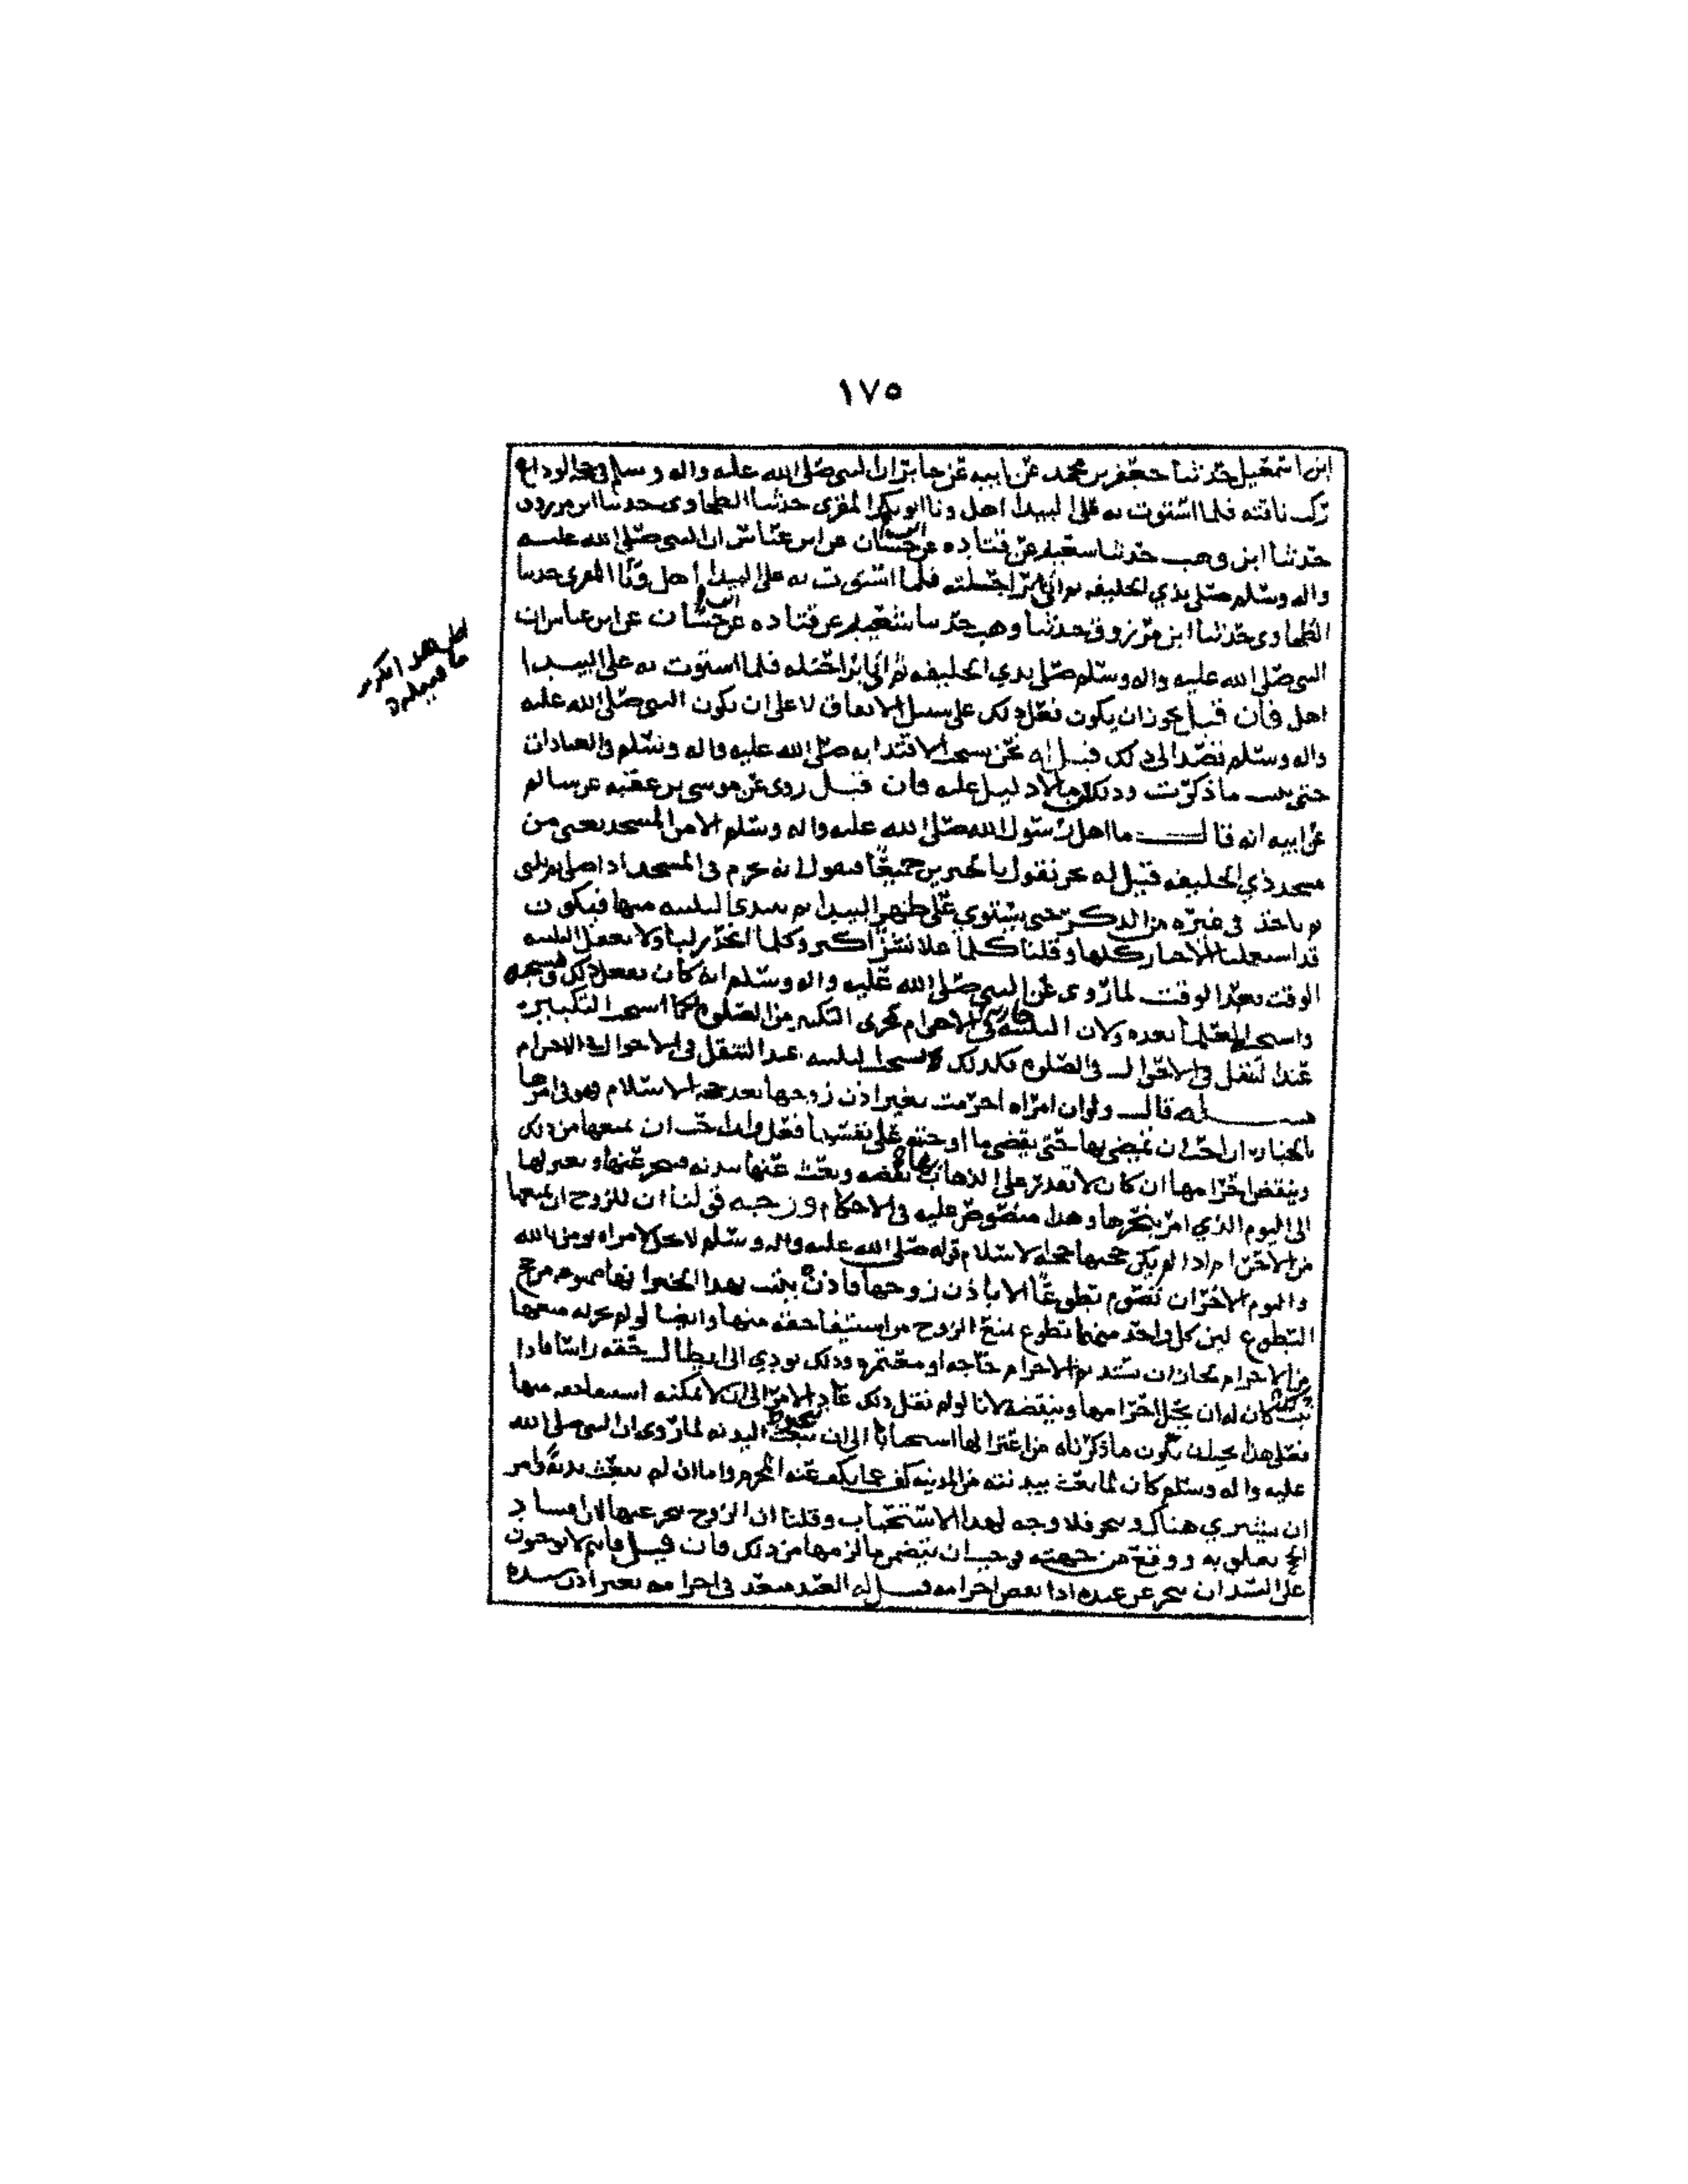 ١٧٥
ابن اسمعيل حدثنا جعفر بن محمد عن ابيه عن جابر ان النبي صلى الله عليه واله وسلم في حجة الوداع
ركب ناقته فلما استوت به على البيدا اهل ونا ابو بكر المقري حدثنا الطحاوي حدثنا ابن مرزوق
حدثنا ابن وهب حدثنا شعبه عن قتاده عن ابي حسان عن ابن عباس ان النبي صلى الله عليه
واله وسلم صلى بذي الحليفه ثم اتي براحلته فلما استوت به على البيدا اهل ونا المقري حدثنا
الطحاوي حدثنا ابن مرزوق حدثنا وهب حدثنا شعبه عن قتاده عن ابي حسان عن ابن عباس ان
النبي صلى الله عليه واله وسلم صلى بذي الحليفه ثم اتي براحلته فلما استوت به على البيدا
اهل فان قيل يجوز ان يكون فعل ذلك على سبيل الاتفاق لا على ان يكون النبي صلى الله عليه
واله وسلم قصد الى ذلك قيل له نحن يستحب الاقتدا به صلى الله عليه واله وسلم في العبادات
حتى يثبت ما ذكرت وذلك مما لا دليل عليه فان قيل روي عن موسى بن عقبه عن سالم
عن ابيه انه قال ما اهل رسول الله صلى الله عليه واله وسلم الا من المسجد يعني من
مسجد ذي الحليفه قيل له نحن نقول بالخبرين جميعا فنقول انه يحرم في المسجد اذا صلى ثم يلبي
ثم ياخذ في غيره من الذكر حتى يستوي على ظهر البيدا ثم يبتدي التلبيه منها فيكون
قد استعملنا الاخبار كلها وقلنا كلما علا نشزا كبر وكلما انحدر لبا ولا يغفل التلبيه
الوقت بعد الوقت لما روي عن النبي صلى الله عليه واله وسلم انه كان يفعل ذلك في حجه
واستحبه العلما بعده ولان التلبيه في الاحرام تجري التكبير من الصلوه فكما استحب التكبير
عند التنقل في الاحوال في الصلوه فكذلك تستحب التلبيه عند التنقل في الاحوال في الاحرام
مسله قال ولو ان امراه احرمت بغير اذن زوجها بعد حجة الاسلام فهو في امرها
بالخيار ان احب ان يمضي بها حتى يقضي ما اوجبته على نفسها فعل وان احب ان يمنعها من ذلك
وينقض احرامها ان كان لا تقدر على الذهاب بها نقضه وبعث عنها ببدنه فتنحر عنها ويعتزلها
الى اليوم الذي امر بنحرها وهذا منصوص عليه في الاحكام وزجبه قولنا ان للزوج ان يمنعها
من الاحرام اذا لم يكن حجها حجة الاسلام قوله صلى الله عليه واله وسلم لا يحل لامراه تومن بالله
واليوم الاخر ان تصوم تطوعا الا باذن زوجها فاذن يثبت بهذا الخبر انها ممنوعه من حج
التطوع لان كل واحد منهما تطوع يمنع الزوج من استيفا حقه منها وايضا لو لم يجز له منعها
من الاحرام لجاز ان تستديم الاحرام حاجه او معتمره وذلك يودي الى ابطال حقه راسا فاذا
ثبت ذلك كان له ان يحل احرامها وينقضه لانا لو لم نقل ذلك عاد الامر الى ان لا يمكنه استمتاعه منها
فعلى هذا يجب ان يكون ما ذكرناه من اعتزالها استحبابا الى ان تنحر البدنه لما روي ان النبي صلى الله
عليه واله وسلم كان لما بعث ببدنته من المدينه كف عما يكف عنه المحرم واما ان لم يبعث بدنه وامر
ان يشتري هناك وينحر فلا وجه لهذا الاستحباب وقلنا ان الزوج ينحر عنها لان افساد
الحج تعلق به ووقع من جهته فوجب ان يتضمن ما لزمها من ذلك فان قيل فانتم لا توجبون
على السيد ان ينحر عن عبده اذا نقض احرامه قيل له العبد متعد في احرامه بغير اذن سيده